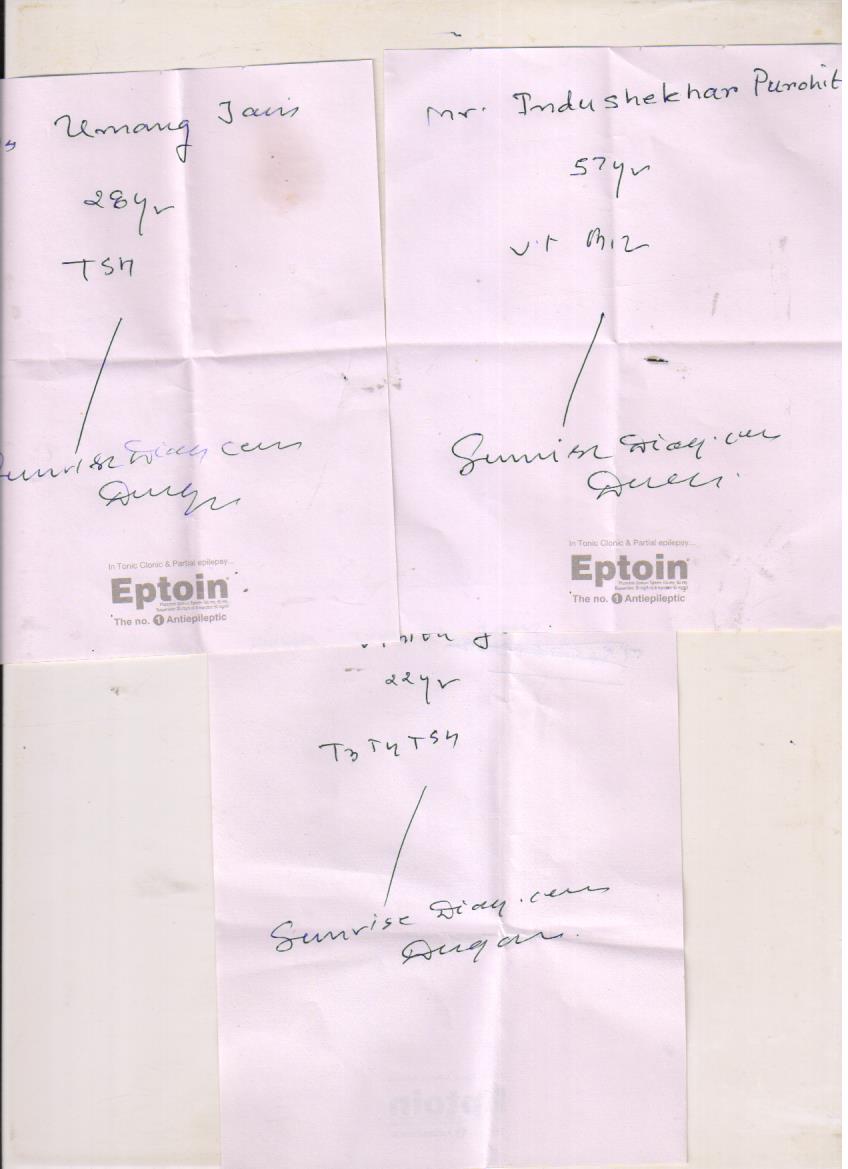 Umang Jain
28yr
TSH
Sunrise Diag cen
In Tonic Clonic & Partial epilepsy...
Eptoin
The no. 1 Antiepileptic
Mr. Indushekhar Purohit
57yr
Vit B12
Sunrise Diag. cen
In Tonic Clonic & Partial epilepsy...
Eptoin
The no. 1 Antiepileptic
22yr
T3 T4 TSH
Sunrise Diag. cen
Eptoin